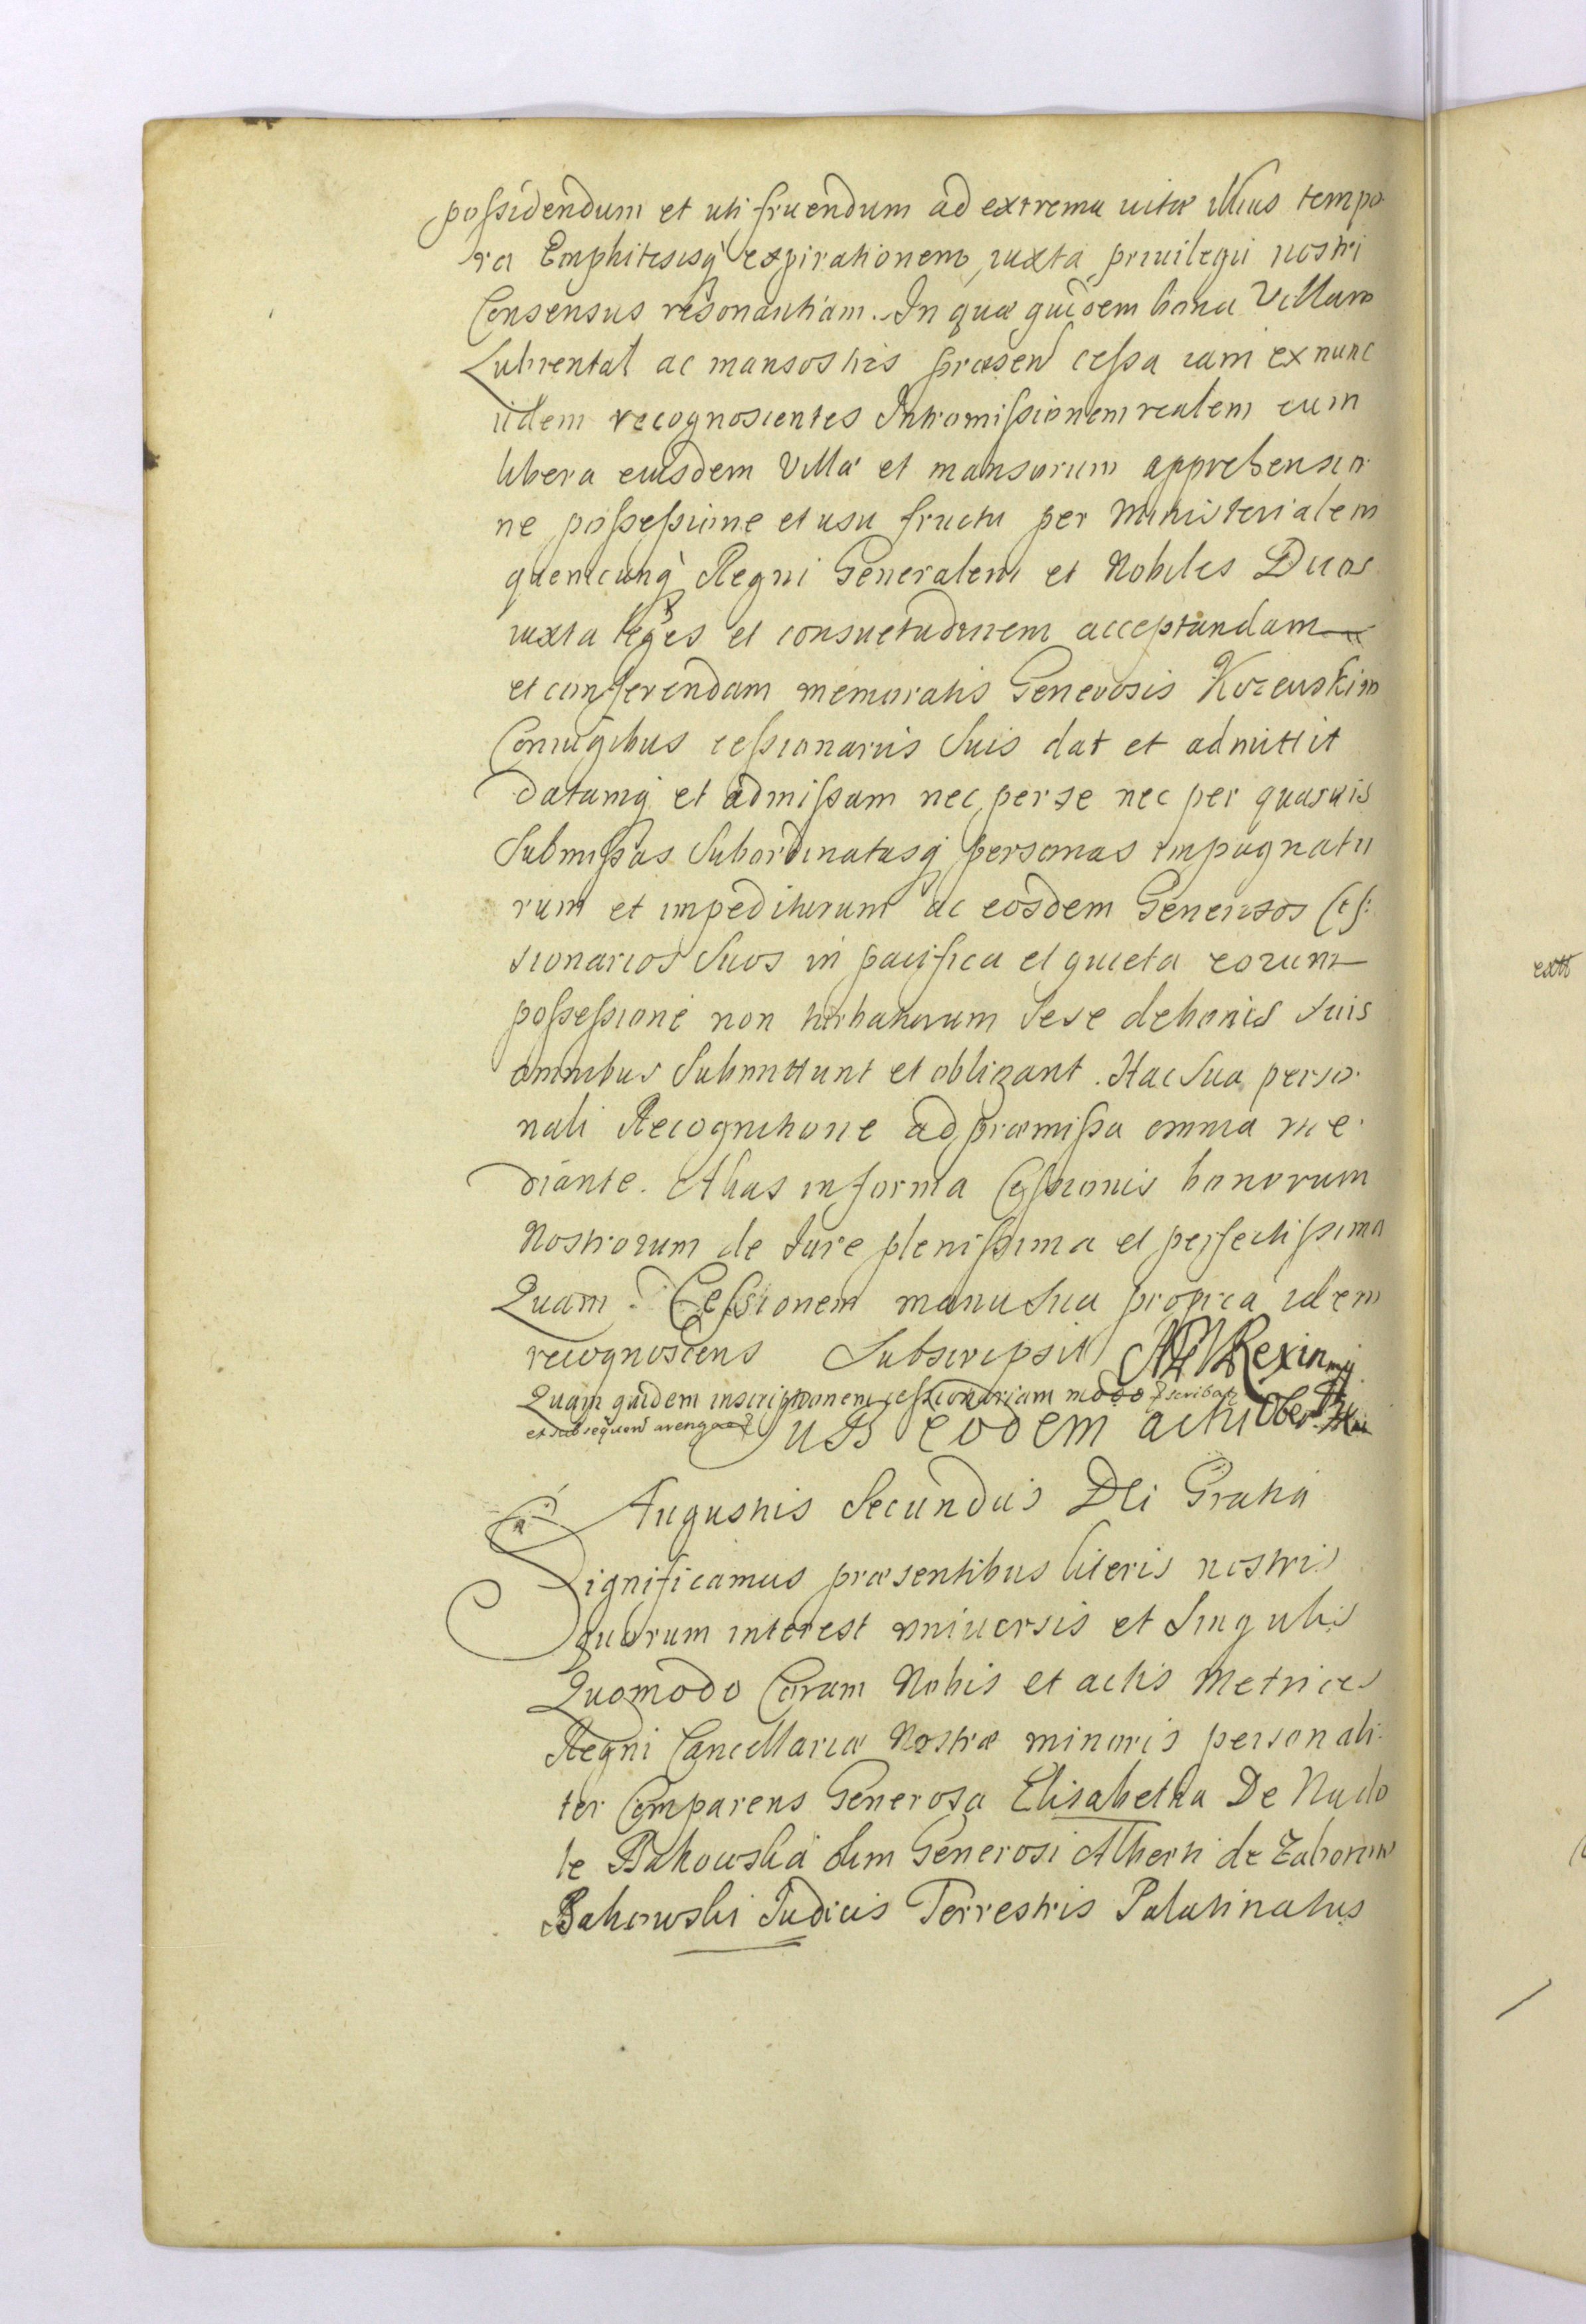 possidendum et uti fruendum ad extrema uitæ illius tempo
ra Emphitesisq́ expirationem, iuxta priuilegii nostri
Consensus resonantiam. In quæ quidem bona Villam
Luhrental ac mansos his præsen cessa iam ex nunc
iidem recognoscentes Intromissionem realem cum
libera eiusdem Villæ et mansorum apprehensio
ne possessione et usu fructu per Ministerialem
quemcunq́ Regni Generalem et Nobiles Duos
iuxta leges et consuetudinem acceptandam
et conferendam memoratis Generosis Kozeuskim
Coniugibus cessionariis Suis dat et admittit
datamq́ et admissam nec per se nec per quasuis
Submissas Subordinatasq́ personas impugnatu
rum et impediturum ac eosdem Generosos Ces:
sionarios Suos in pacifica et quieta eorum
possessione non turbaturum Sese de bonis suis
omnibus Submittunt et obligant. Hac Sua perso
nali Recognitione ad præmissa omnia me
diante. Alias in forma Cessionis bonorum
Nostrorum de Iure plenissima et perfectissima
Quam Cessionem manu Sua propria idem
recognoscens Subscripsit Rexin mp
Quam quidem inscriptionem cessionariam modo
et subsequen uts eodem actu
Augustus Secundus Dei Gratia
Significamus præsentibus literis nostris
quorum interest vniuersis et Singulis
Quomodo Coram Nobis et actis Metrices
Regni Cancellariæ Nostræ minoris personali
ter Comparens Generosa Elisabetha De Nado
le Bakowska olim Generosi Alberti de Zaborow
Bakowski Iudicis Terrestris Palatinatus
extt